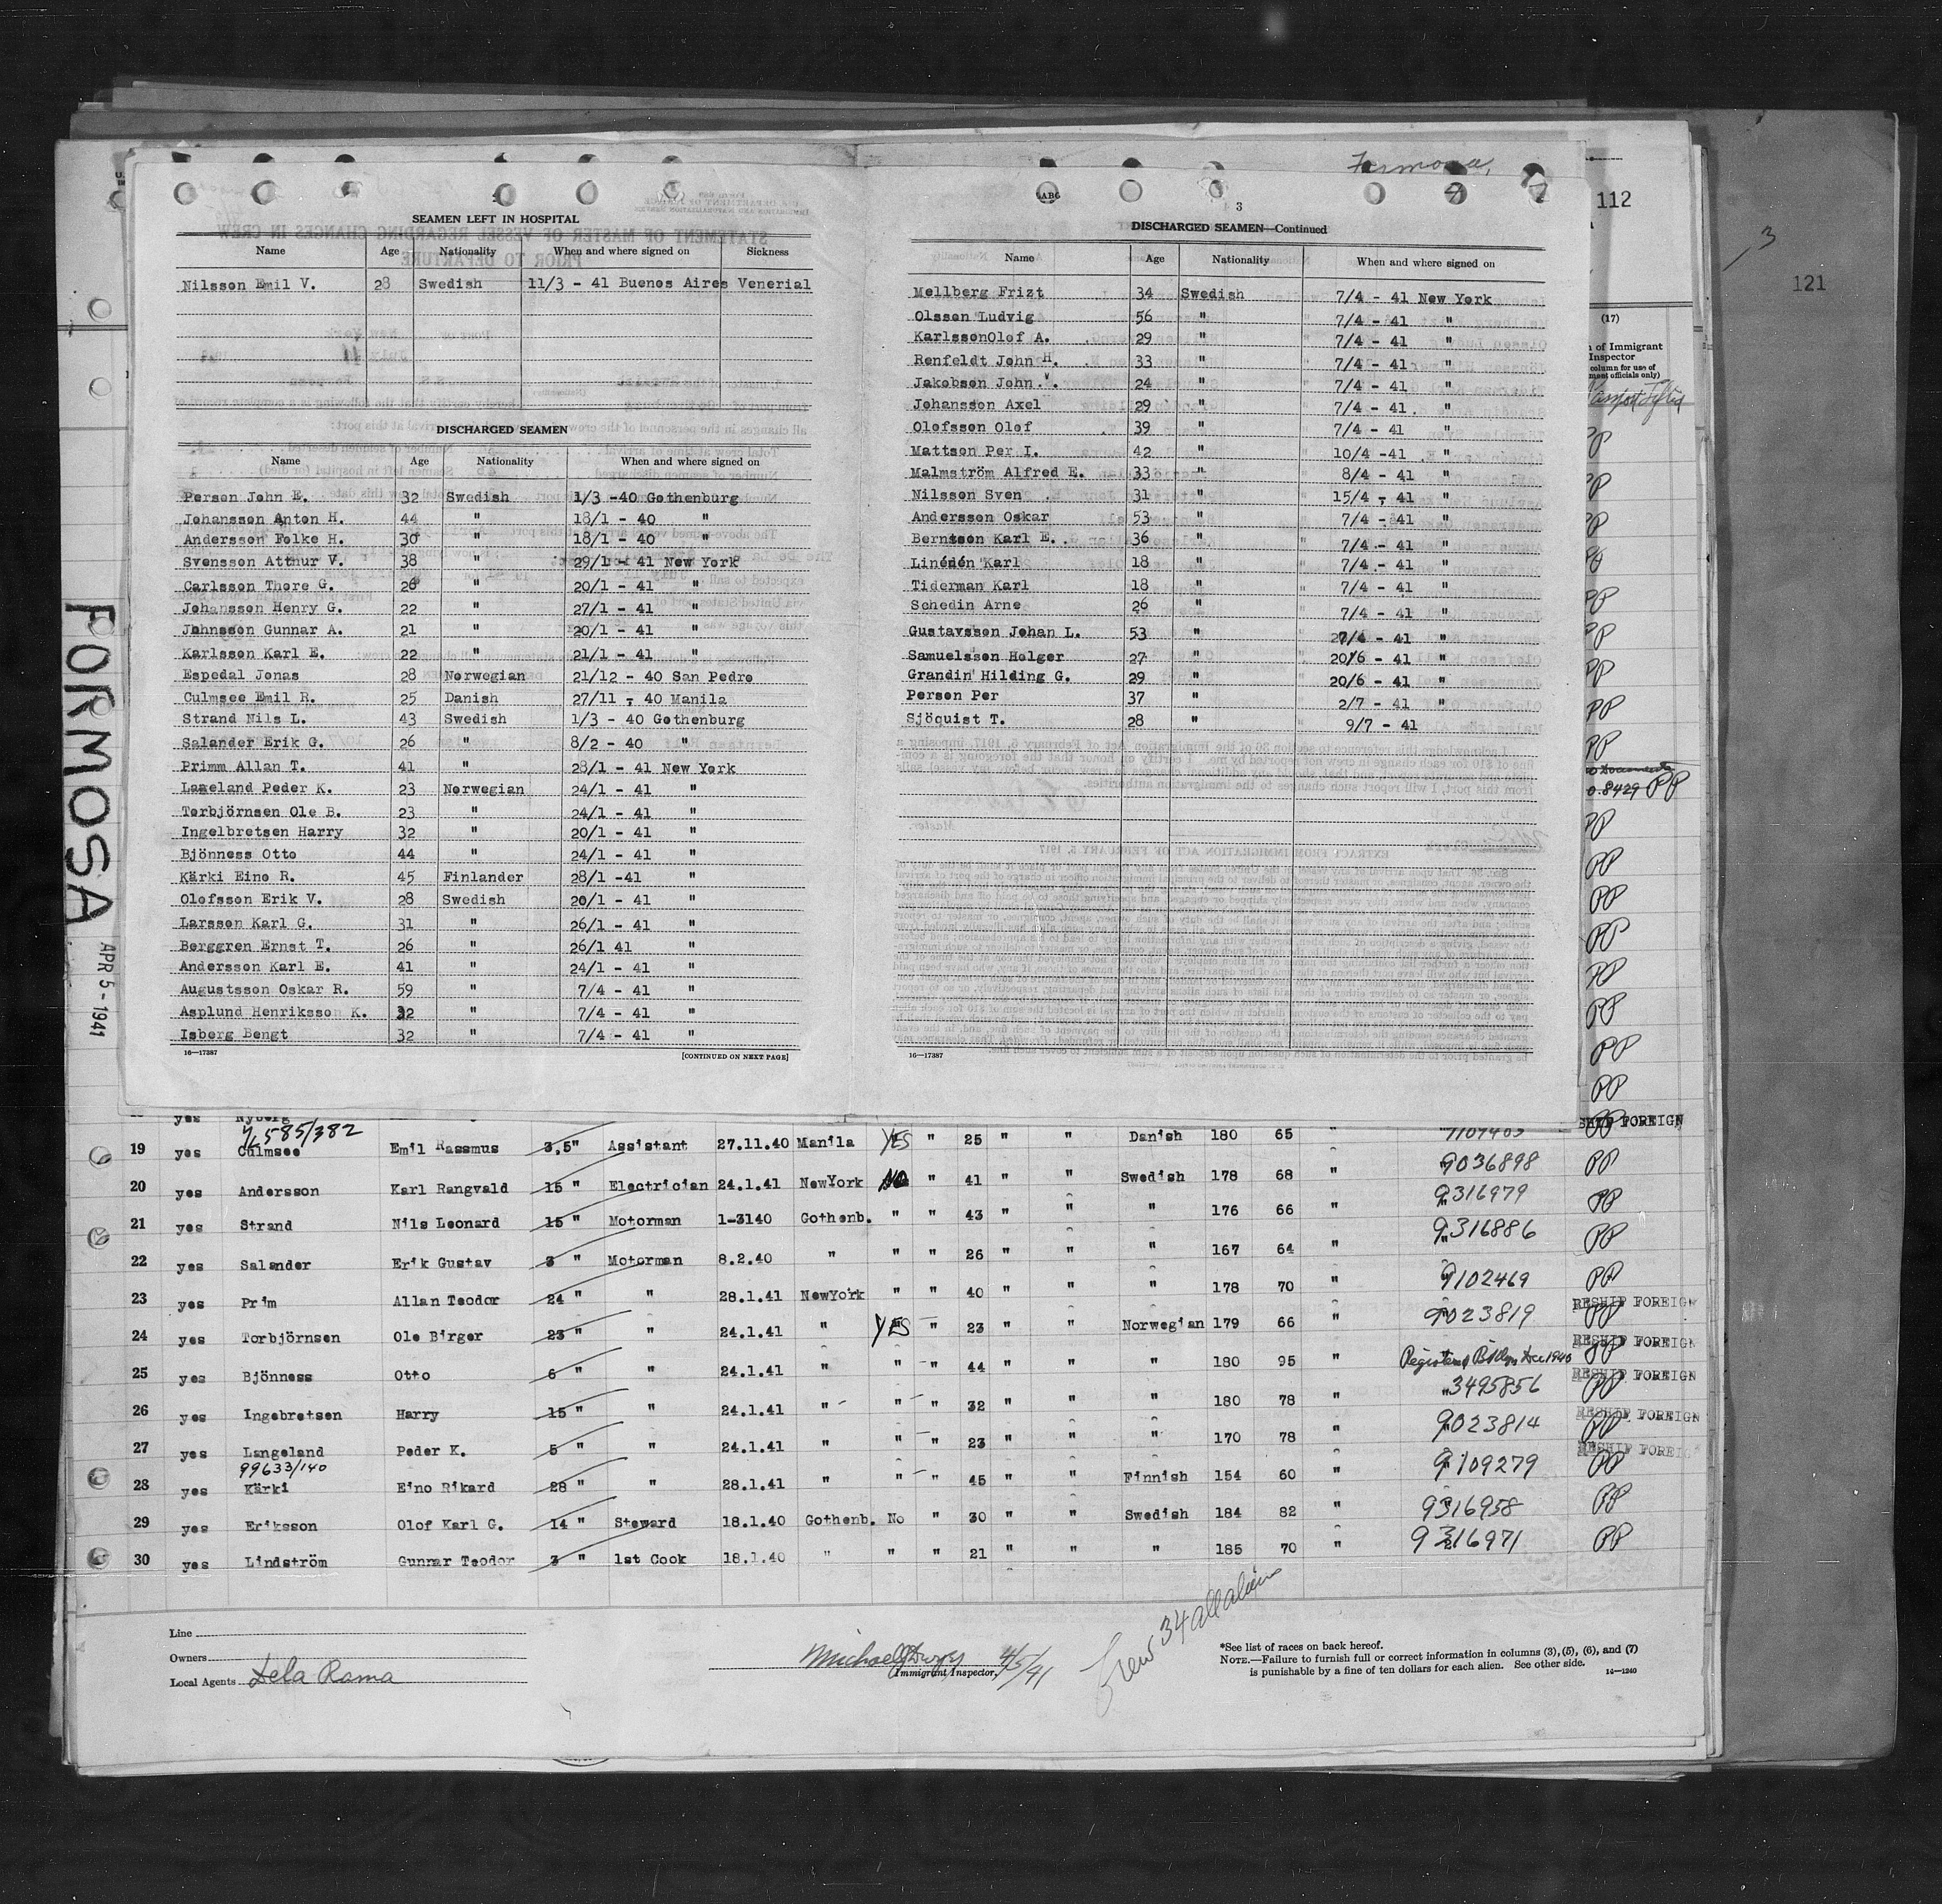 Formosa,
2
SEAMEN LEFT IN HOSPITAL
Name Age Nationality When and where signed on Sickness
Nilsson Emil V. 28 Swedish 11/3 - 41 Buenos Aires Venerial
DISCHARGED SEAMEN
Name Age Nationality When and where signed on
Person John E. 32 Swedish 1/3 -40 Gothenburg
Johansson Anton H. 44 " 18/1 - 40 "
Andersson Folke H. 30 " 18/1 - 40 "
Svensson Atthur V. 38 " 29/1 - 41 New York
Carlsson Thore G. 26 " 20/1 - 41 "
Johansson Henry G. 22 " 27/1 - 41 "
Johnsson Gunnar A. 21 " 20/1 - 41 "
Karlsson Karl E. 22 " 21/1 - 41 "
Espedal Jonas 28 Norwegian 21/12 - 40 San Pedro
Culmsee Emil R. 25 Danish 27/11 - 40 Manila
Strand Nils L. 43 Swedish 1/3 - 40 Gothenburg
Salander Erik G. 26 " 8/2 - 40 "
Primm Allan T. 41 " 28/1 - 41 New York
Langeland Peder K. 23 Norwegian 24/1 - 41 "
Torbjörnsen Ole B. 23 " 24/1 - 41 "
Ingelbretsen Harry 32 " 20/1 - 41 "
Bjönness Otto 44 " 24/1 - 41 "
Kärki Eino R. 45 Finlander 28/1 -41 "
Olofsson Erik V. 28 Swedish 20/1 - 41 "
Larsson Karl G. 31 " 26/1 - 41 "
Berggren Ernst T. 26 " 26/1 41 "
Andersson Karl E. 41 " 24/1 - 41 "
Augustsson Oskar R. 59 " 7/4 - 41 "
Asplund Henriksson K. 32 " 7/4 - 41 "
Isberg Bengt 32 " 7/4 - 41 "
16—17387 [CONTINUED ON NEXT PAGE]
GABG
3
DISCHARGED SEAMEN—Continued
Name Age Nationality When and where signed on
Mellberg Frizt 34 Swedish 7/4 - 41 New York
Olsson Ludvig 56 " 7/4 - 41 "
KarlssonOlof A. 29 " 7/4 - 41 "
Renfeldt John H. 33 " 7/4 - 41 "
Jakobson John V. 24 " 7/4 - 41 "
Johansson Axel 29 " 7/4 - 41. "
Olofsson Olof 39 " 7/4 - 41 "
Mattson Per I. 42 " 10/4 -41 "
Malmström Alfred E. 33 " 8/4 - 41 "
Nilsson Sven 31 " 15/4 - 41 "
Andersson Oskar 53 " 7/4 - 41 "
Berntson Karl E. 36 " 7/4 - 41 "
Linédén Karl 18 " 7/4 - 41 "
Tiderman Karl 18 " 7/4 - 41 "
Schedin Arne 26 " 7/4 - 41 "
Gustavsson Johan L. 53 " 7/4 - 41 "
Samuelsson Holger 27 " 20/6 - 41 "
Grandin Hilding G. 29 " 20/6 - 41 "
Person Per 37 " 2/7 - 41 "
Sjöquist T. 28 " 9/7 - 41
16—17387
112
3
121
(17)
of Immigrant
Inspector
column for use of
ment officials only)
FORMOSA
APR 5 - 1941
yes Nyberg
RESHIP FOREIGN
585/382
19 yes Culmsee Emil Rassmus 3.5" Assistant 27.11.40 Manila YES " 25 " " Danish 180 65 " PP
20 yes Andersson Karl Rangvald 15 " Electrician 24.1.41 NewYork No " 41 " " Swedish 178 68 " 9036898 PP
21 yes Strand Nils Leonard 15 " Motorman 1-3140 Gothenb. " " 43 " " " 176 66 " 9316979 PP
22 yes Salander Erik Gustav 3 " Motorman 8.2.40 " " " 26 " " " 167 64 " 9316886 PP
23 yes Prim Allan Teodor 24 " " 28.1.41 NewYork " " 40 " " " 178 70 " 9102469 PP
RESHIP FOREIGN
24 yes Torbjörnsen Ole Birger 23 " " 24.1.41 " YES " 23 " " Norwegian 179 66 " 9023819 PP
RESHIP FOREIGN
25 yes Bjönness Otto 6 " " 24.1.41 " " " 44 " " " 180 95 " Registered Bklyn Dec 1940 PP
RESHIP FOREIGN
26 yes Ingebretsen Harry 15 " " 24.1.41 " " " 32 " " " 180 78 " 3495856 PP
RESHIP FOREIGN
27 yes Langeland Peder K. 5 " " 24.1.41 " " " 23 " " " 170 78 " 9023814 PP
RESHIP FOREIGN
99633/140
28 yes Kärki Eino Rikard 28 " " 28.1.41 " " " 45 " " Finnish 154 60 " 9109279 PP
29 yes Eriksson Olof Karl G. 14 " Steward 18.1.40 Gothenb. No " 30 " " Swedish 184 82 " 9316958 PP
30 yes Lindström Gunnar Teodor 3 " 1st Cook 18.1.40 " " " 21 " " " 185 70 " 9316971 PP
Line
Owners
Local Agents Dela Rama
Immigrant Inspector, 4/5/41
Crew 34 all aliens
*See list of races on back hereof.
NOTE.—Failure to furnish full or correct information in columns (3), (5), (6), and (7)
is punishable by a fine of ten dollars for each alien. See other side.
14—1240